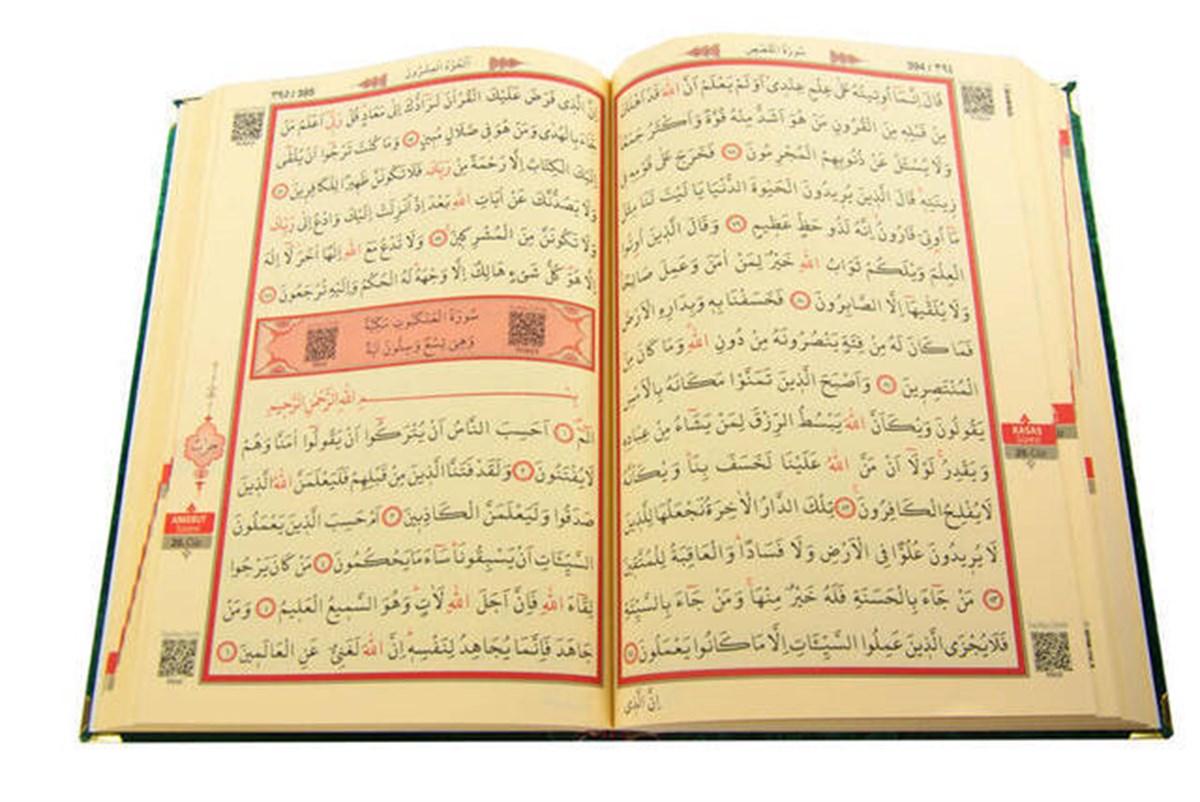 سُورَةُ القَصَصِ
394 / ٣٩٤
قَالَ اِنَّمَٓا اُو۫ت۪يتُهُ عَلٰى عِلْمٍ عِنْد۪ي اَوَلَمْ يَعْلَمْ اَنَّ اللّٰهَ قَدْ اَهْلَكَ
مِنْ قَبْلِه۪ مِنَ الْقُرُونِ مَنْ هُوَ اَشَدُّ مِنْهُ قُوَّةً وَاَكْثَرُ جَمْعًا
وَلَا يُسْـَٔلُ عَنْ ذُنُوبِهِمُ الْمُجْرِمُونَ ٧٨ فَخَرَجَ عَلٰى قَوْمِه۪ ف۪ي
ز۪ينَتِه۪ قَالَ الَّذ۪ينَ يُر۪يدُونَ الْحَيٰوةَ الدُّنْيَا يَا لَيْتَ لَنَا مِثْلَ
مَٓا اُو۫تِيَ قَارُونُ اِنَّهُ لَذُو حَظٍّ عَظ۪يمٍ ٧٩ وَقَالَ الَّذ۪ينَ اُو۫تُوا
الْعِلْمَ وَيْلَكُمْ ثَوَابُ اللّٰهِ خَيْرٌ لِمَنْ اٰمَنَ وَعَمِلَ صَالِحًا
وَلَا يُلَقّٰيهَٓا اِلَّا الصَّابِرُونَ ٨٠ فَخَسَفْنَا بِه۪ وَبِدَارِهِ الْاَرْضَ
فَمَا كَانَ لَهُ مِنْ فِئَةٍ يَنْصُرُونَهُ مِنْ دُونِ اللّٰهِ وَمَا كَانَ مِنَ
الْمُنْتَصِر۪ينَ ٨١ وَاَصْبَحَ الَّذ۪ينَ تَمَنَّوْا مَكَانَهُ بِالْاَمْسِ
يَقُولُونَ وَيْكَاَنَّ اللّٰهَ يَبْسُطُ الرِّزْقَ لِمَنْ يَشَٓاءُ مِنْ عِبَادِه۪
وَيَقْدِرُ لَوْلَٓا اَنْ مَنَّ اللّٰهُ عَلَيْنَا لَخَسَفَ بِنَا وَيْكَاَنَّهُ
لَا يُفْلِحُ الْكَافِرُونَ ٨٢ تِلْكَ الدَّارُ الْاٰخِرَةُ نَجْعَلُهَا لِلَّذ۪ينَ
لَا يُر۪يدُونَ عُلُوًّا فِي الْاَرْضِ وَلَا فَسَادًا وَالْعَاقِبَةُ لِلْمُتَّق۪ينَ
٨٣ مَنْ جَٓاءَ بِالْحَسَنَةِ فَلَهُ خَيْرٌ مِنْهَا وَمَنْ جَٓاءَ بِالسَّيِّئَةِ
فَلَا يُجْزَى الَّذ۪ينَ عَمِلُوا السَّيِّـَٔاتِ اِلَّا مَا كَانُوا يَعْمَلُونَ ٨٤
اِنَّ الَّذ۪ي
KASAS
Suresi
20. Cüz
اَلْجُزْءُ الْعِشْرُونَ
٣٩٥ / 395
اِنَّ الَّذ۪ي فَرَضَ عَلَيْكَ الْقُرْاٰنَ لَرَٓادُّكَ اِلٰى مَعَادٍ قُلْ رَبّ۪ٓي اَعْلَمُ مَنْ
جَٓاءَ بِالْهُدٰى وَمَنْ هُوَ ف۪ي ضَلَالٍ مُب۪ينٍ ٨٥ وَمَا كُنْتَ تَرْجُٓوا اَنْ يُلْقٰٓى
اِلَيْكَ الْكِتَابُ اِلَّا رَحْمَةً مِنْ رَبِّكَ فَلَا تَكُونَنَّ ظَه۪يرًا لِلْكَافِر۪ينَ ٨٦
وَلَا يَصُدُّنَّكَ عَنْ اٰيَاتِ اللّٰهِ بَعْدَ اِذْ اُنْزِلَتْ اِلَيْكَ وَادْعُ اِلٰى رَبِّكَ
وَلَا تَكُونَنَّ مِنَ الْمُشْرِك۪ينَ ٨٧ وَلَا تَدْعُ مَعَ اللّٰهِ اِلٰهًا اٰخَرَ لَٓا اِلٰهَ
اِلَّا هُوَ كُلُّ شَيْءٍ هَالِكٌ اِلَّا وَجْهَهُ لَهُ الْحُكْمُ وَاِلَيْهِ تُرْجَعُونَ ٨٨
سُورَةُ الْعَنْكَبُوتِ مَكِّيَّةٌ
وَهِيَ تِسْعٌ وَسِتُّونَ اٰيَةً
بِسْمِ اللّٰهِ الرَّحْمٰنِ الرَّح۪يمِ
الٓمٓ ١ اَحَسِبَ النَّاسُ اَنْ يُتْرَكُٓوا اَنْ يَقُولُٓوا اٰمَنَّا وَهُمْ
لَا يُفْتَنُونَ ٢ وَلَقَدْ فَتَنَّا الَّذ۪ينَ مِنْ قَبْلِهِمْ فَلَيَعْلَمَنَّ اللّٰهُ الَّذ۪ينَ
صَدَقُوا وَلَيَعْلَمَنَّ الْكَاذِب۪ينَ ٣ اَمْ حَسِبَ الَّذ۪ينَ يَعْمَلُونَ
السَّيِّـَٔاتِ اَنْ يَسْبِقُونَا سَٓاءَ مَا يَحْكُمُونَ ٤ مَنْ كَانَ يَرْجُوا
لِقَٓاءَ اللّٰهِ فَاِنَّ اَجَلَ اللّٰهِ لَاٰتٍ وَهُوَ السَّم۪يعُ الْعَل۪يمُ ٥ وَمَنْ
جَاهَدَ فَاِنَّمَا يُجَاهِدُ لِنَفْسِه۪ اِنَّ اللّٰهَ لَغَنِيٌّ عَنِ الْعَالَم۪ينَ ٦
حزب
ANKEBUT
Suresi
20. Cüz